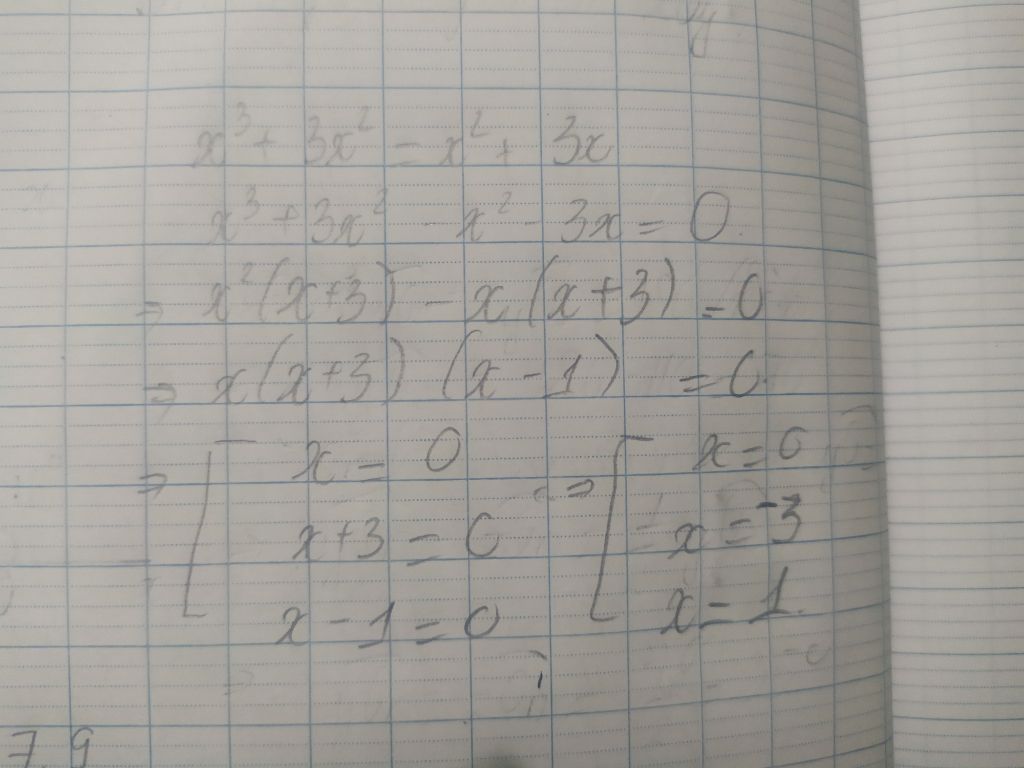 x³ + 3x² = x² + 3x
x³ + 3x² - x² - 3x = 0
⇒ x²(x+3) - x(x+3) = 0
⇒ x(x+3) (x-1) = 0
⇒ [ x = 0 ⇒ [ x = 0
x+3 = 0 x = -3
x - 1 = 0 x = 1
7 9